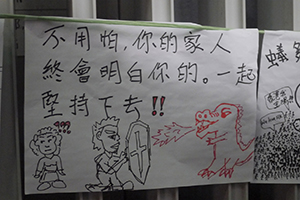 不用怕，你的家人
終會明白你的。一起
堅持下去!!
???
蟻